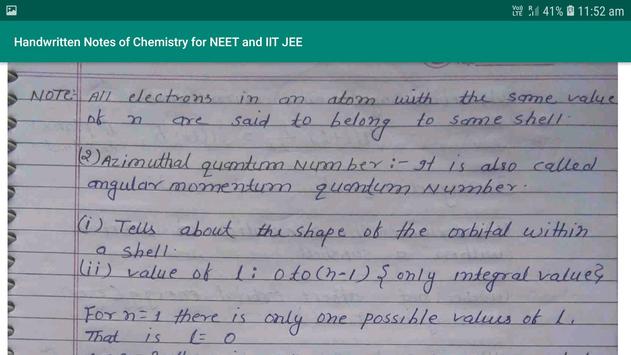 Vo)) LTE 41% 11:52 am
Handwritten Notes of Chemistry for NEET and IIT JEE
NOTE:- All electrons in an atom with the same value
of n are said to belong to same shell.
(2) Azimuthal quantum Number :- It is also called
angular momentum quantum Number.
(i) Tells about the shape of the orbital within
a shell.
(ii) value of l : 0 to (n-1) { only integral value}
For n=1 there is only one possible values of l.
That is l= 0